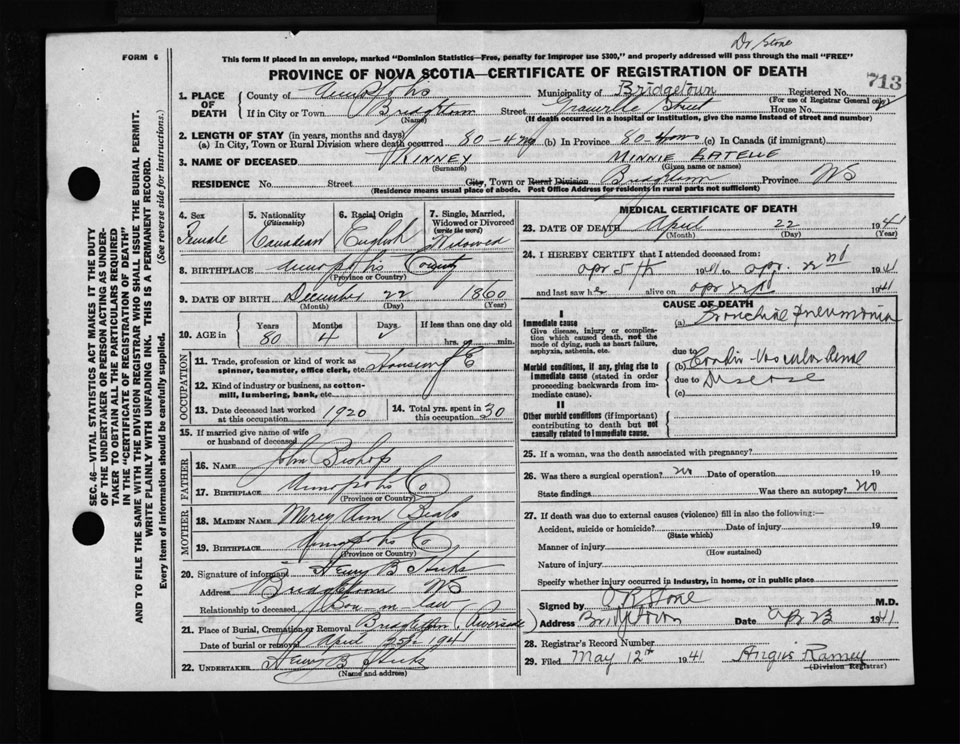 Dr Stone
FORM 6
This form if placed in an envelope, marked "Dominion Statistics—Free, penalty for improper use $300," and properly addressed will pass through the mail "FREE"
PROVINCE OF NOVA SCOTIA—CERTIFICATE OF REGISTRATION OF DEATH
713
1. PLACE OF DEATH
County of Annapolis Municipality of Bridgetown Registered No.
(For use of Registrar General only)
If in City or Town Bridgetown Street Granville Street House No.
(Name) (If death occurred in a hospital or institution, give the name instead of street and number)
2. LENGTH OF STAY (in years, months and days)
(a) In City, Town or Rural Division where death occurred 80-4 (b) In Province 80-4 mos (c) In Canada (if immigrant)
3. NAME OF DECEASED KINNEY MINNIE
(Surname) (Given name or names)
RESIDENCE No. Street City, Town or Rural Division Bridgetown Province NS
(Residence means usual place of abode. Post Office Address for residents in rural parts not sufficient)
4. Sex Female
5. Nationality (Citizenship) Canadian
6. Racial Origin English
7. Single, Married, Widowed or Divorced (write the word) Widowed
8. BIRTHPLACE Annapolis County
(Province or Country)
9. DATE OF BIRTH December 22 1860
(Month) (Day) (Year)
10. AGE in Years 80 Months 4 Days If less than one day old hrs. min.
OCCUPATION
11. Trade, profession or kind of work as spinner, teamster, office clerk, etc.
12. Kind of industry or business, as cotton-mill, lumbering, bank, etc.
13. Date deceased last worked at this occupation 1920
14. Total yrs. spent in this occupation 30
15. If married give name of wife or husband of deceased
FATHER
16. NAME John Bishop
17. BIRTHPLACE Annapolis Co
(Province or Country)
MOTHER
18. MAIDEN NAME Mercy Ann Beals
19. BIRTHPLACE Annapolis Co
(Province or Country)
20. Signature of informant Henry B Hicks
Address Bridgetown NS
Relationship to deceased Son in law
21. Place of Burial, Cremation or Removal Bridgetown (Riverside)
Date of burial or removal April 25th 1941
22. UNDERTAKER Henry B Hicks
(Name and address)
MEDICAL CERTIFICATE OF DEATH
23. DATE OF DEATH April 22 1941
(Month) (Day) (Year)
24. I HEREBY CERTIFY that I attended deceased from:
apr 5th 1941 to apr. 22nd 1941
and last saw her alive on apr 22nd 1941
CAUSE OF DEATH
I
Immediate cause
Give disease, injury or complication which caused death, not the mode of dying, such as heart failure, asphyxia, asthenia, etc.
(a) Bronchial Pneumonia
due to
Morbid conditions, if any, giving rise to immediate cause (stated in order proceeding backwards from immediate cause).
(b) Cardio-Vascular-Renal
due to Disease
(c)
II
Other morbid conditions (if important) contributing to death but not causally related to immediate cause.
25. If a woman, was the death associated with pregnancy?
26. Was there a surgical operation? no Date of operation 19
State findings Was there an autopsy? no
27. If death was due to external causes (violence) fill in also the following:—
Accident, suicide or homicide? Date of injury 19
(State which)
Manner of injury
(How sustained)
Nature of injury
Specify whether injury occurred in industry, in home, or in public place
Signed by Stone M.D.
Address Bridgetown Date apr 23 1941
28. Registrar's Record Number
29. Filed May 12th 1941 Angus Ramey
(Division Registrar)
SEC. 46—VITAL STATISTICS ACT MAKES IT THE DUTY
OF THE UNDERTAKER OR PERSON ACTING AS UNDER-
TAKER TO OBTAIN ALL THE PARTICULARS REQUIRED
IN THE "CERTIFICATE OF REGISTRATION OF DEATH"
AND TO FILE THE SAME WITH THE DIVISION REGISTRAR WHO SHALL ISSUE THE BURIAL PERMIT.
WRITE PLAINLY WITH UNFADING INK. THIS IS A PERMANENT RECORD.
Every item of information should be carefully supplied. (See reverse side for instructions.)